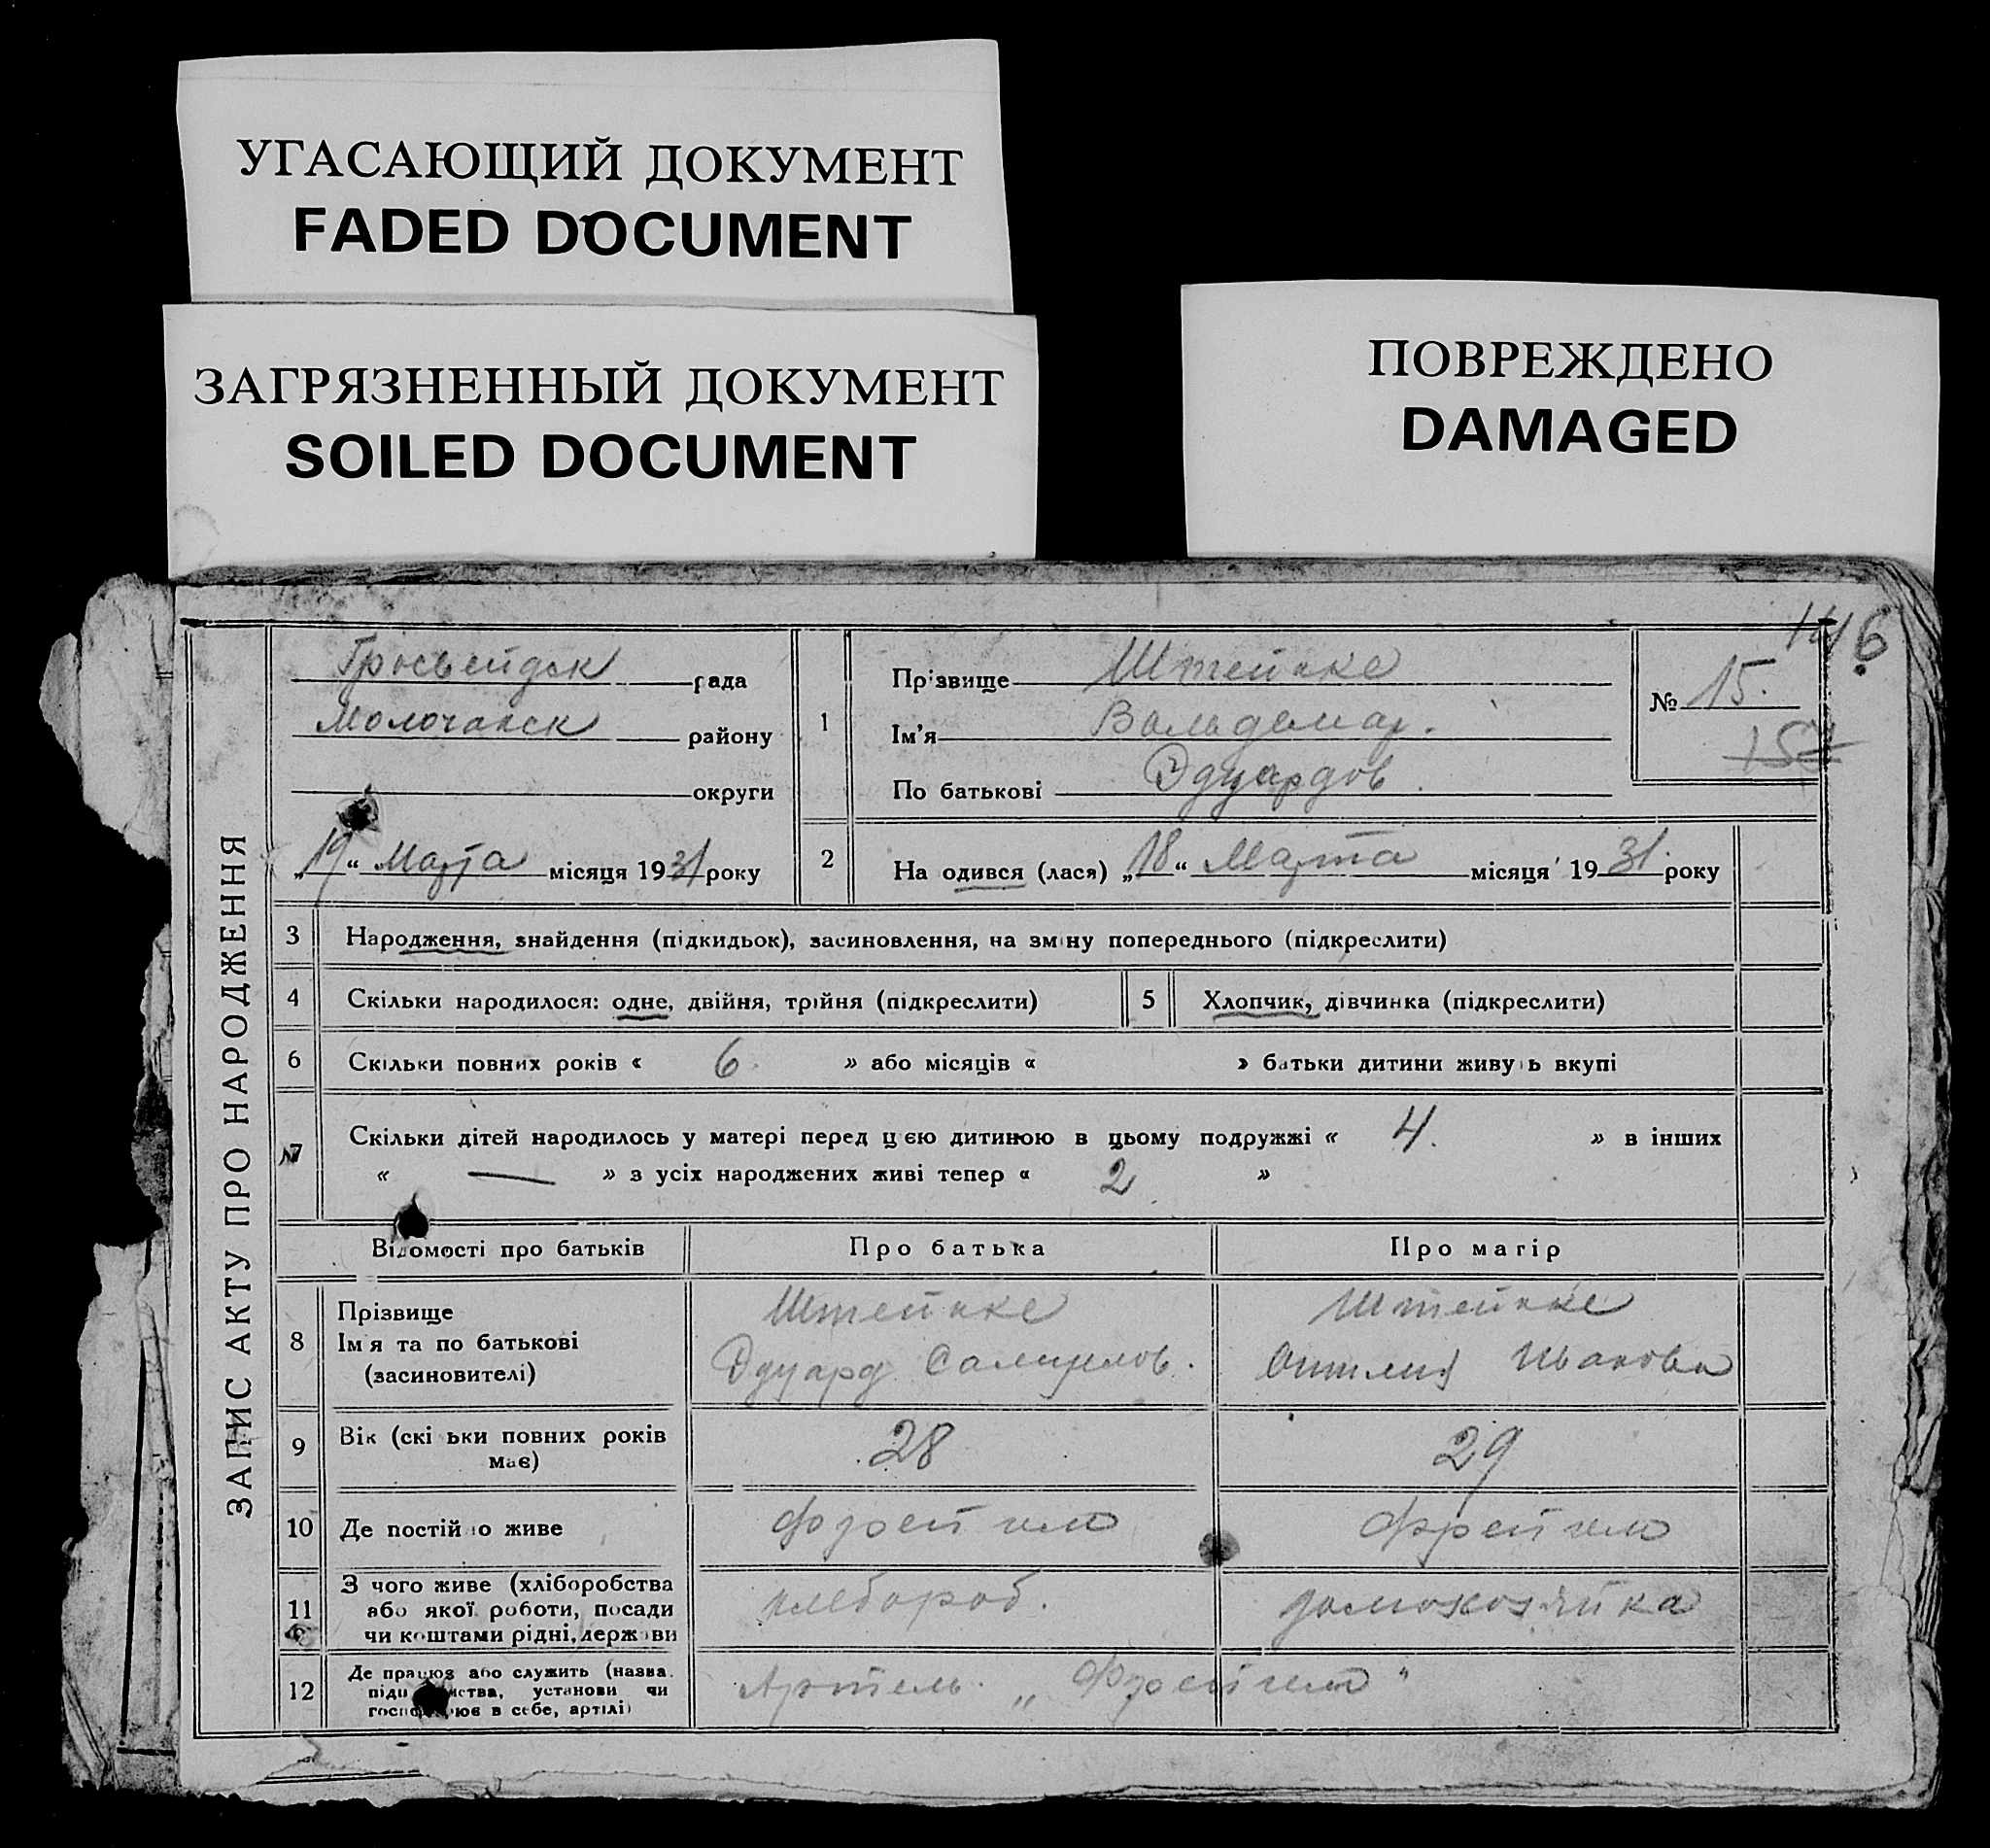 УГАСАЮЩИЙ ДОКУМЕНТ
FADED DOCUMENT
ЗАГРЯЗНЕННЫЙ ДОКУМЕНТ
SOILED DOCUMENT
ПОВРЕЖДЕНО
DAMAGED
146
ЗАПИС АКТУ ПРО НАРОДЖЕННЯ
рада
Молочанск району
округи
„19“ Марта місяця 1931 року
1
Прізвище Штейнке
Ім'я Вальдемар.
По батькові Эдуардов
№ 15.
2 На одився (лася) „18“ Марта місяця 1931. року
3 Народження, знайдення (підкидьок), засиновлення, на зміну попереднього (підкреслити)
4 Скільки народилося: одне, двійня, трійня (підкреслити)
5 Хлопчик, дівчинка (підкреслити)
6 Скільки повних років « 6 » або місяців « » батьки дитини живу ь вкупі
7 Скільки дітей народилось у матері перед цією дитиною в цьому подружжі « 4. » в інших
« — » з усіх народжених живі тепер « 2 »
Відомості про батьків Про батька Про матір
8 Прізвище Штейнке Штейнке
Ім'я та по батькові Эдуард Самуилов. Оттилия Иванова
(засиновителі)
9 Вік (скі ьки повних років має) 28 29
10 Де постій о живе Фрейгейм Фрейгейм
11 З чого живе (хліборобства
або якої роботи, посади
чи коштами рідні, держави
хлебороб. домохозяйка
12 Де працює або служить (назва
підп мства, установи чи
госпо рює в себе, артілі)
Артель. „Фрейгейм"